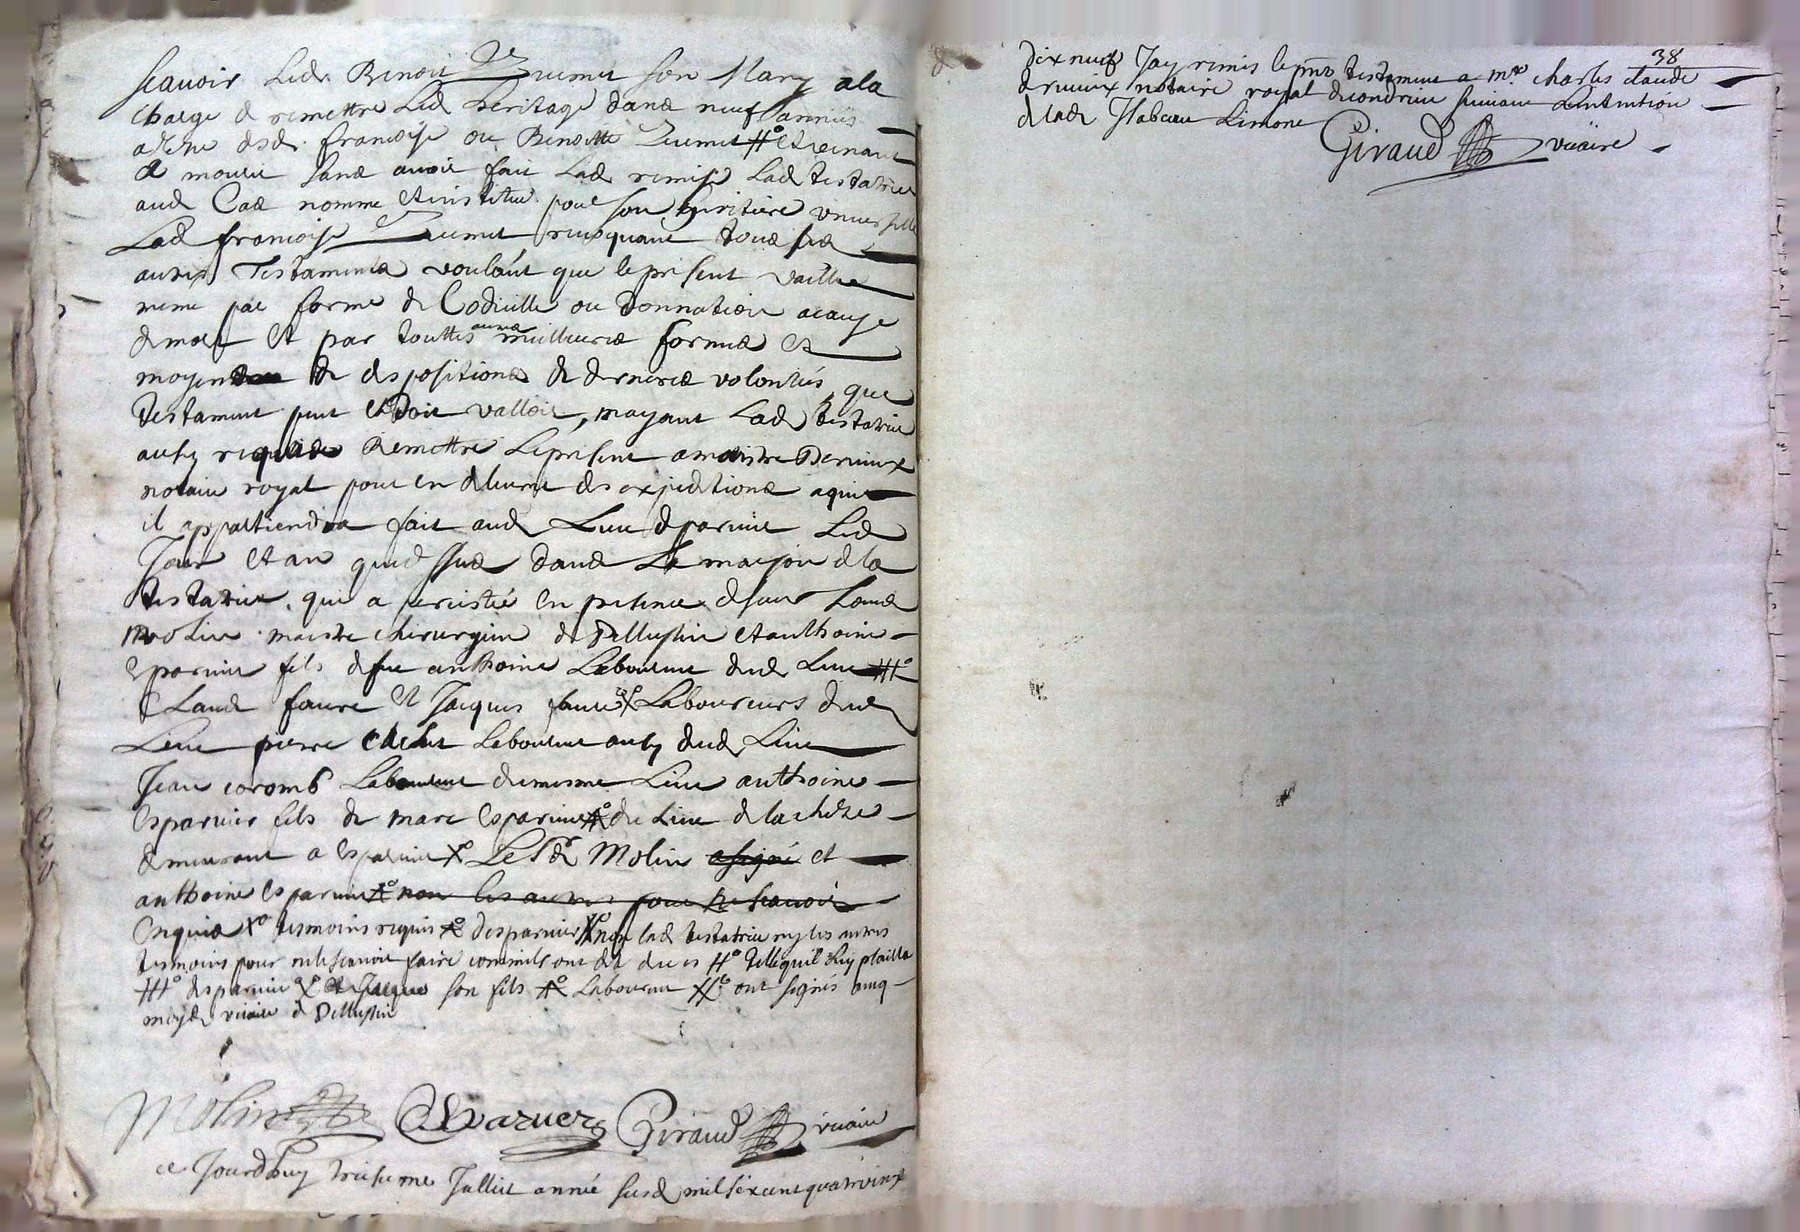 scavoir Led Benoit Zuemet son Mary ala
charge de remettre Led heritage dans neuf années
a desd. francoise ou Benoitte Zuemet #°
de mourir sans avoir fait Lad remise Lad testatrice
aud Cas nomme et institue pour son heritiere universelle
Lad francoise Zuemet revoquant tous ses
autres Testaments voulant que le present vaille
meme par forme de Codicille ou donnation a cause
de mort et par touttes autres meilleures formes et
moyen de dispositions de dernieres volontés que
testament peut et doit valloir, mayant Lad testatrice
aussy remettre Lepresent a maistre Dervieux
notaire royal pour en delivrer des expeditions a qui
il appartiendra fait aud Lieu desparvier Led
Jour et an que dessus dans La maison de la
testatrice qui a persisté en presence de sieur Laud
Molin maistre chirurgien de Pellussin et anthoine
esparvier fils de feu anthoine Laboureur dud Lieu #°
Claude faure et Jacques faure Laboureurs dud
Lieu pierre Laboureur aussy dud Lieu
Jean coromb Laboureur du mesme Lieu anthoine
esparvier fils de marc esparvier du Lieu de
demeurant a esparvier X° Le Sr Molin a signé et
anthoine esparvier non les autres pour ne scavoir
enquis X° tesmoins requis desparvier non lad testatrice ny les autres
tesmoins pour ne scavoir faire comme ils ont dit #° telle quil luy plaira
#° desparvier et Jacques son fils Laboureur ont signés avec
moyd vicaire de Pellussin
Molin Esparvier Giraud vicaire
ce Jourdhuy treiseme Juillet année susd mil six cent quatre vinx
38
dix neuf Jay remis le pnt testament a Mre charles claude
dervieux notaire royal de condrieu suivant Lintention
de lad Isabeau Limone
Giraud vicaire